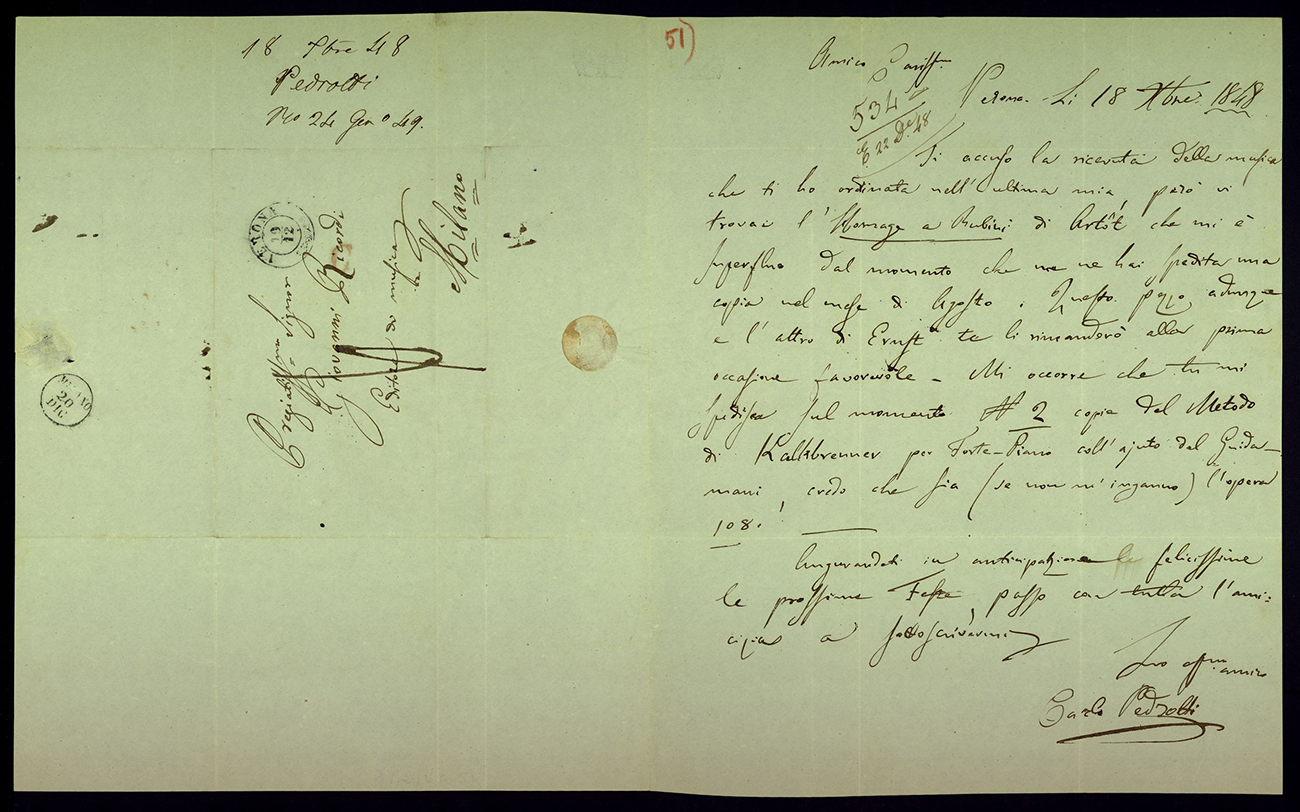 18 Xbre 48
Pedrotti
Ro 24 Gen.o 49.
VERONA
19
12
Pregiatiss.mo Signor
Giovanni Ricordi
Editore di musica
Milano
MILANO
20
DIC
51)
Amico Cariss.mo
534
E 22 De 48
Verona. Li 18 Xbre. 1848
Ti accuso la ricevuta della musica
che ti ho ordinata nell'ultima mia, però vi
trovai l'Homage a Rubini di Artôt che mi è
superfluo dal momento che me ne hai spedita una
copia nel mese di Agosto. Questo pezzo adunque
e l'altro di Ernst te li rimanderò alla prima
occasione favorevole - Mi occorre che tu mi
spedisca sul momento N 2 copie del Metodo
di Kalkbrenner per Forte-Piano coll'ajuto del Guida-
mani, credo che sia (se non m'inganno) l'opera
108.
Augurandoti in anticipazione felicissime
le prossime Feste, passo con tutta l'ami:
cizia a sottoscrivermi
Tuo aff.mo amico
Carlo Pedrotti